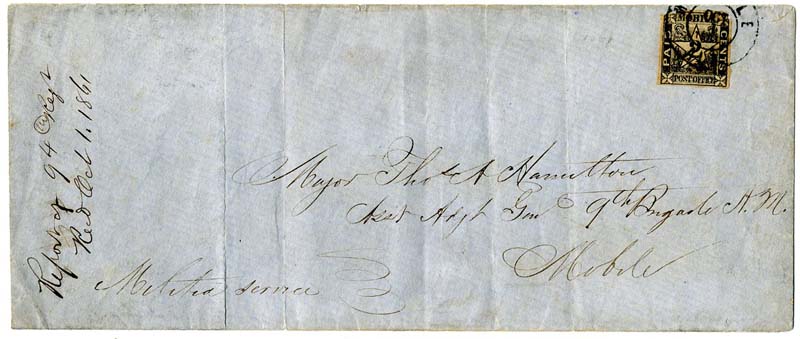 MOBILE
PAID
2
CENTS
POST OFFICE
Report of 94 Regt
Recd Oct 1. 1861
Major Thos A Hamilton
Asst Adjt Genl 9th Brigade A. M.
Mobile
Militia service